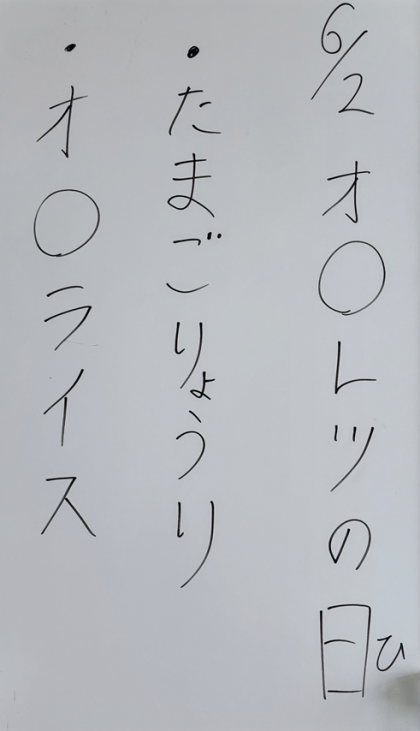 6/2 オ○レツの日
ひ
・たまごりょうり
・オ○ライス